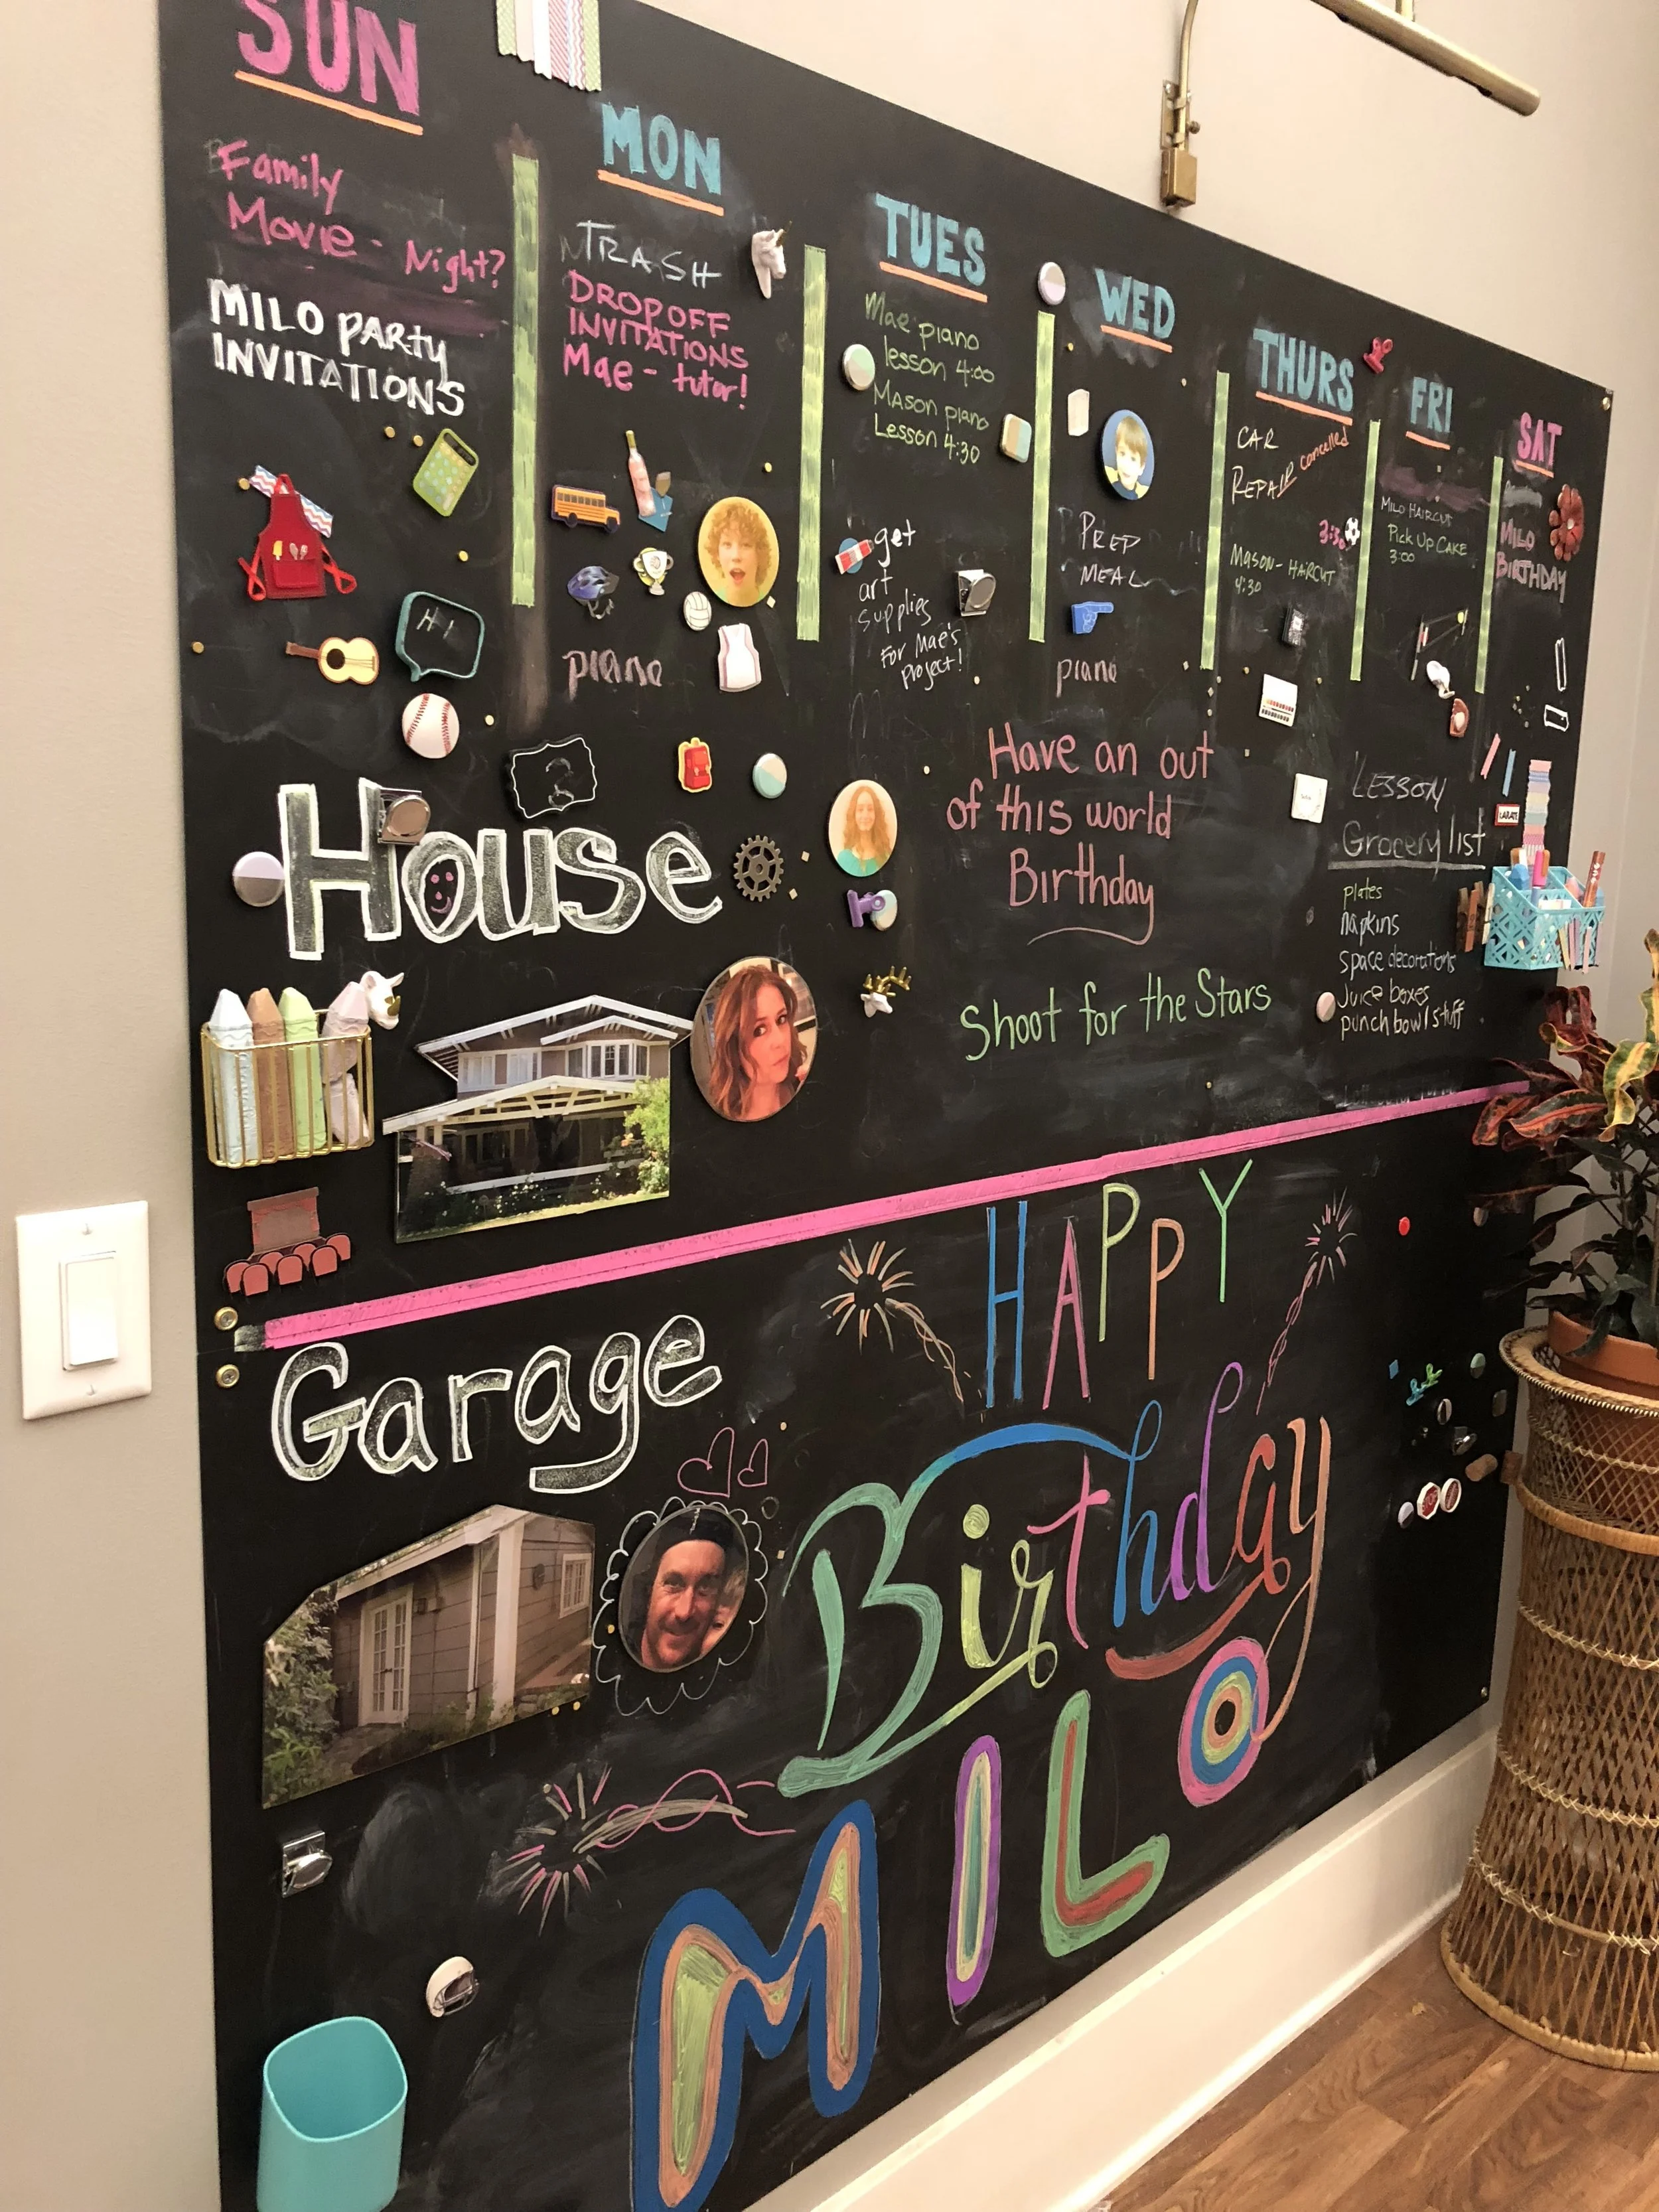 SUN
Family
Movie - Night?
MILO PARty
INVITATIONS
MON
TRASH
DROP OFF
INVITATIONS
Mae - tutor!
piano
TUES
Mae piano
lesson 4:00
MASON piano
Lesson 4:30
get
art
supplies
For Mae's
project!
WED
PREP
MEAL
piano
THURS
CAR
REPAIR cancelled
3:30
MASON - HAIRCUT
4:30
FRI
MILO HAIRCUT
Pick Up CAKE
3:00
SAT
MILO
BIRTHDAY
HI
3
House
Have an out
of this world
Birthday
Shoot for the Stars
LESSON
Grocery list
plates
napkins
space decorations
Juice boxes
punch bowl stuff
Garage
HAPPY
Birthday
MILO